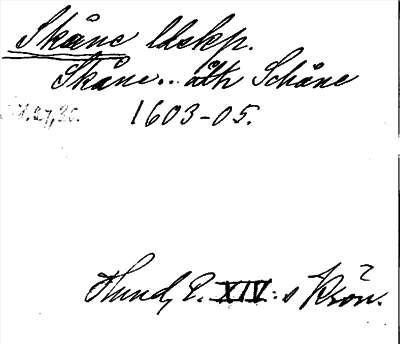 Skåne ldskp.
Skåne.. äth Schåne
1603-05.
Hund, E. XIV:s Krön.